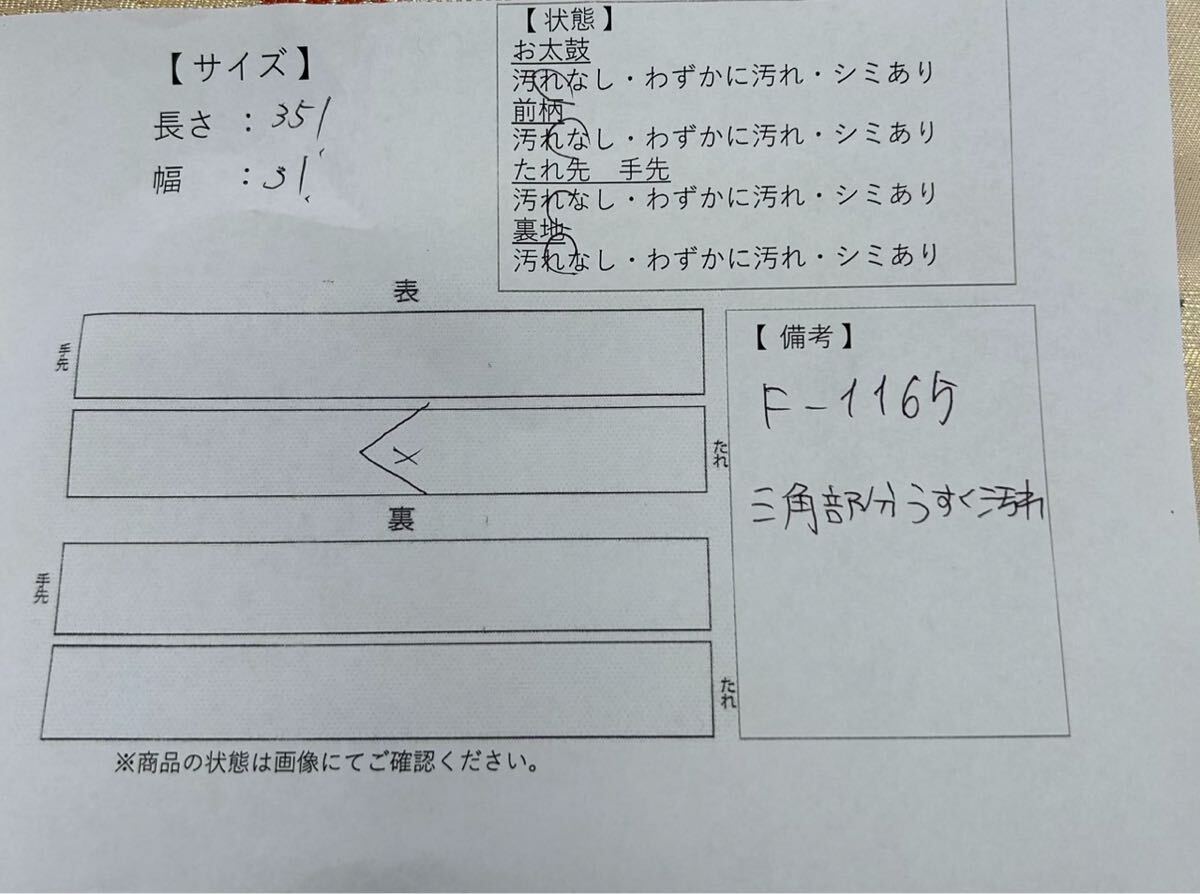 【サイズ】
長さ ：351
幅 ：31
【状態】
お太鼓
汚れなし・わずかに汚れ・シミあり
前柄
汚れなし・わずかに汚れ・シミあり
たれ先 手先
汚れなし・わずかに汚れ・シミあり
裏地
汚れなし・わずかに汚れ・シミあり
表
手先
×
たれ
裏
手先
たれ
【備考】
F-1165
三角部分うすく汚れ
※商品の状態は画像にてご確認ください。